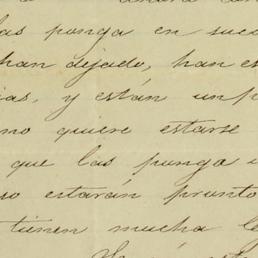 las ponga en suco
han dejado, han es
ias, y están un p
mo quiere estarse
que las ponga u
so estarán pronto
tienen mucha le